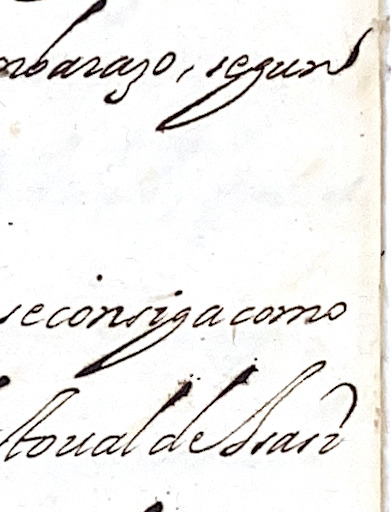 mbarazo, segun
se consiga como
toual de